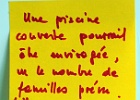 Une piscine
couverte pourrait
être envisagée,
vu le nombre de
familles prévu